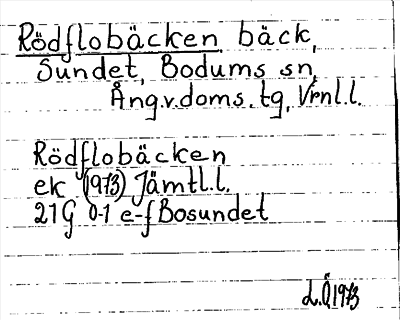 Rödflobäcken, bäck,
Sundet, Bodums sn,
Ång.v.doms.tg, Vrnl.l.
Rödflobäcken
ek (1973) Jämtl.l.
21G 0-1 e-f Bosundet
L.Ö 1973